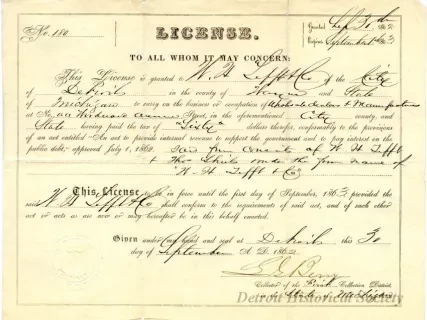 No. 180
LICENSE.
Granted Sep 30th 1862
Expires September 1 1863
TO ALL WHOM IT MAY CONCERN:
This License is granted to W. H. Tefft & Co of the City
of Detroit in the county of Wayne and State
of Michigan to carry on the business or occupation of Wholesale dealers & Manufacturers
at No. Woodward Avenue Street, in the aforementioned City county, and
State having paid the tax of "Sixty" dollars therefor, conformably to the provisions
of an act entitled "An act to provide internal revenue to support the government and to pay interest on the
public debt," approved July 1, 1862. Said firm consists of W H Tefft
& under the firm name of
"W. H. Tefft & Co"
This License to be in force until the first day of September, 1863 provided the
said W H Tefft & Co shall conform to the requirements of said act, and of such other
act or acts as are now or may hereafter be in this behalf enacted.
Given under my hand and seal at Detroit this 30
day of September A. D. 1862
Collector of the First Collection District,
in the State of Michigan
Detroit Historical Society